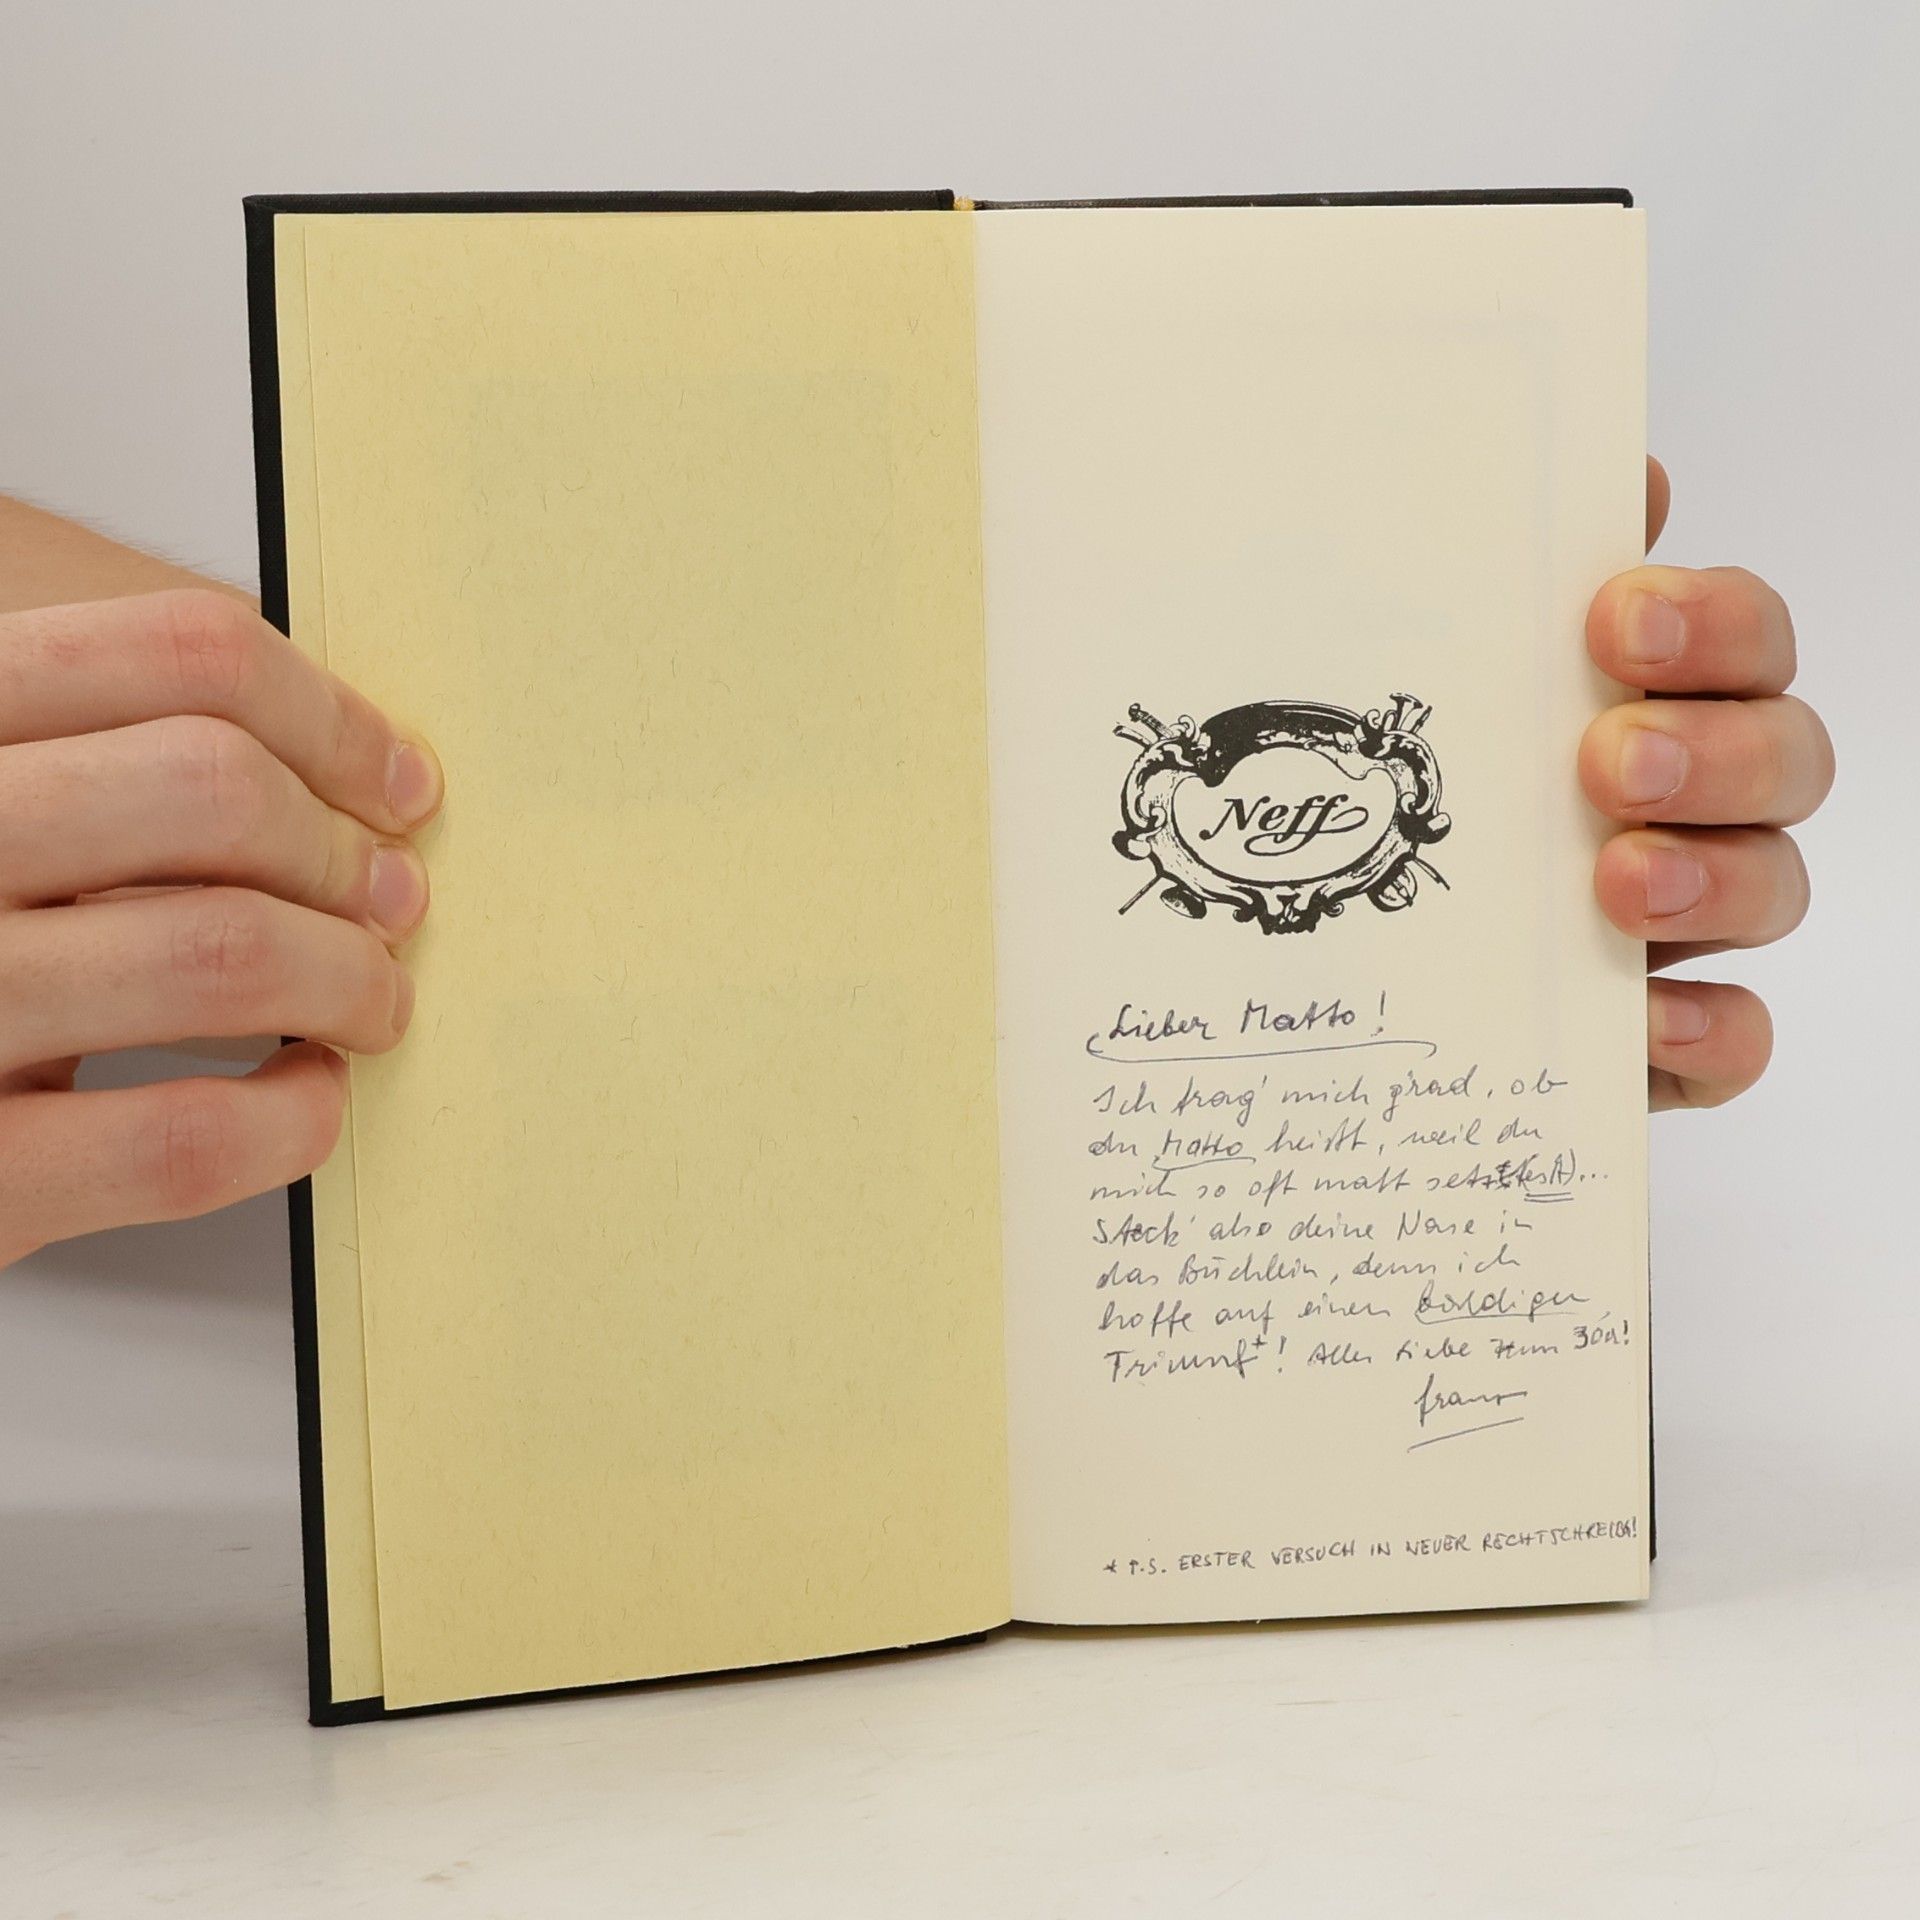 Neff
Lieber Matto!
Ich frag' mich g'rad, ob
du Matto heißt, weil du
mich so oft matt setz(test)...
Steck' also deine Nase in
das Büchlein, denn ich
hoffe auf einen baldigen
Triumf*! Alles Liebe zum 30a!
Franz
* P.S. ERSTER VERSUCH IN NEUER RECHTSCHREIBG!